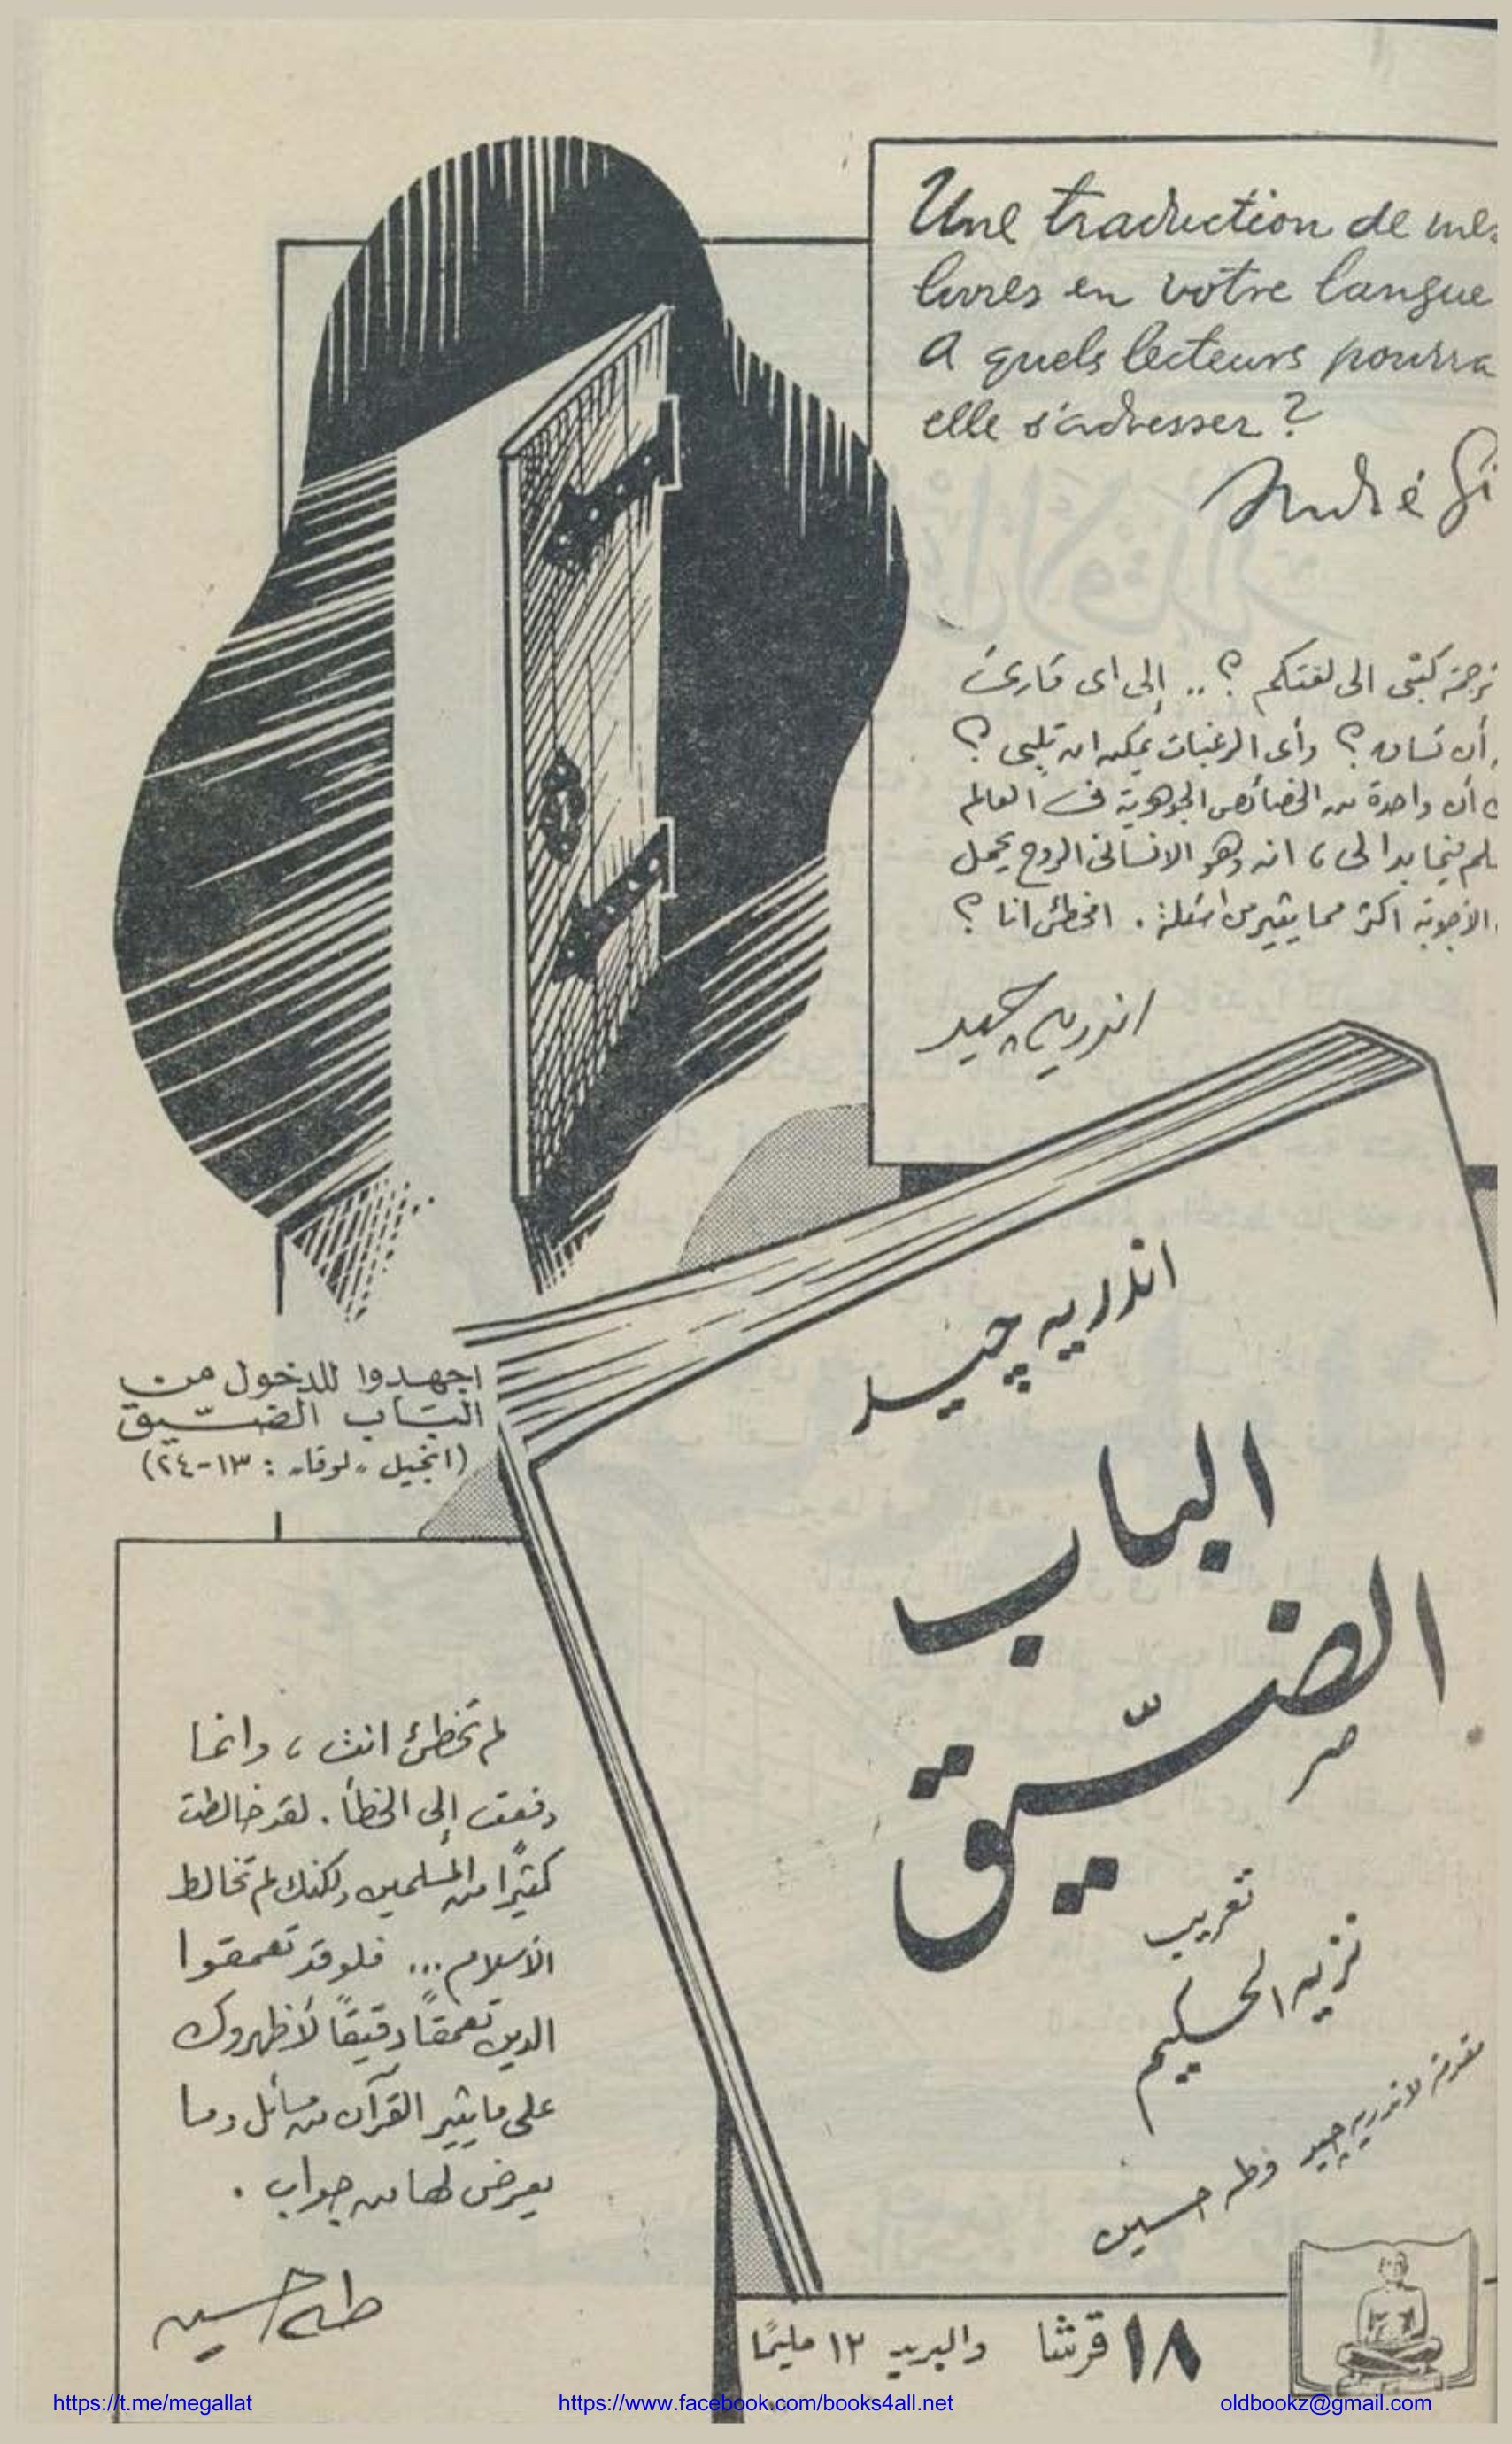 Une traduction de mes
livres en votre langue
A quels lecteurs pourra
elle s'adresser ?
André Gi
ترجمة كتبى الى لغتكم ؟ .. إلى اى قارئ
أن تساق ؟ وأى الرغبات يمكن ان تلبى ؟
أن واحدة من الخصائص الجوهرية فى العالم
لم فيما بدا لى ، انه وهو الانسانى الروح يحمل
الأجوبة اكثر مما يثير من اسئلة . امخطئ انا ؟
اندريه چيد
اجهدوا للدخول من
الباب الضيّق
(انجيل "لوقا" : ١٣-٢٤)
اندريه چيد
الباب
الضيّق
تعريب
نزيه الحكيم
مقدمة لاندريه چيد وطه حسين
لم تخطئ انت ، وانما
دفعت إلى الخطأ . لقد خالطت
كثيرًا من المسلمين ولكنك لم تخالط
الأسلام ... فلو قد تعمقوا
الدين تعمقًا دقيقًا لأظهروك
على ما يثير القرآن من مسائل وما
يعرض لها من جواب .
طه حسين
١٨ قرشا والبريد ١٢ مليمًا
https://t.me/megallat
https://www.facebook.com/books4all.net
oldbookz@gmail.com